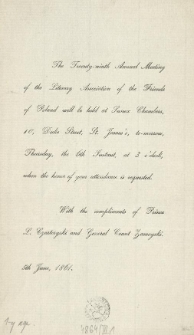 The Twenty-ninth Annual Meeting
of the Literary Association of the Friends
of Poland will be held at Sussex Chambers,
10, Duke Street, St. James's, to-morrow,
Thursday, the 6th Instant, at 3 o'clock,
when the honor of your attendance is requested.
With the compliments of Prince
L. Czartoryski and General Count Zamoyski.
5th June, 1861.